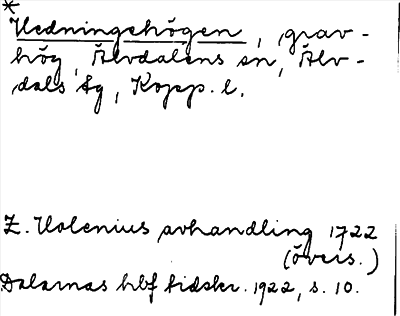 *
Hedningehögen, grav-
hög, Älvdalens sn, Älv-
dals tg, Kopp. l.
Z. Holenius avhandling 1722
(övers.)
Dalarnas hbf tidskr. 1922, s. 10.